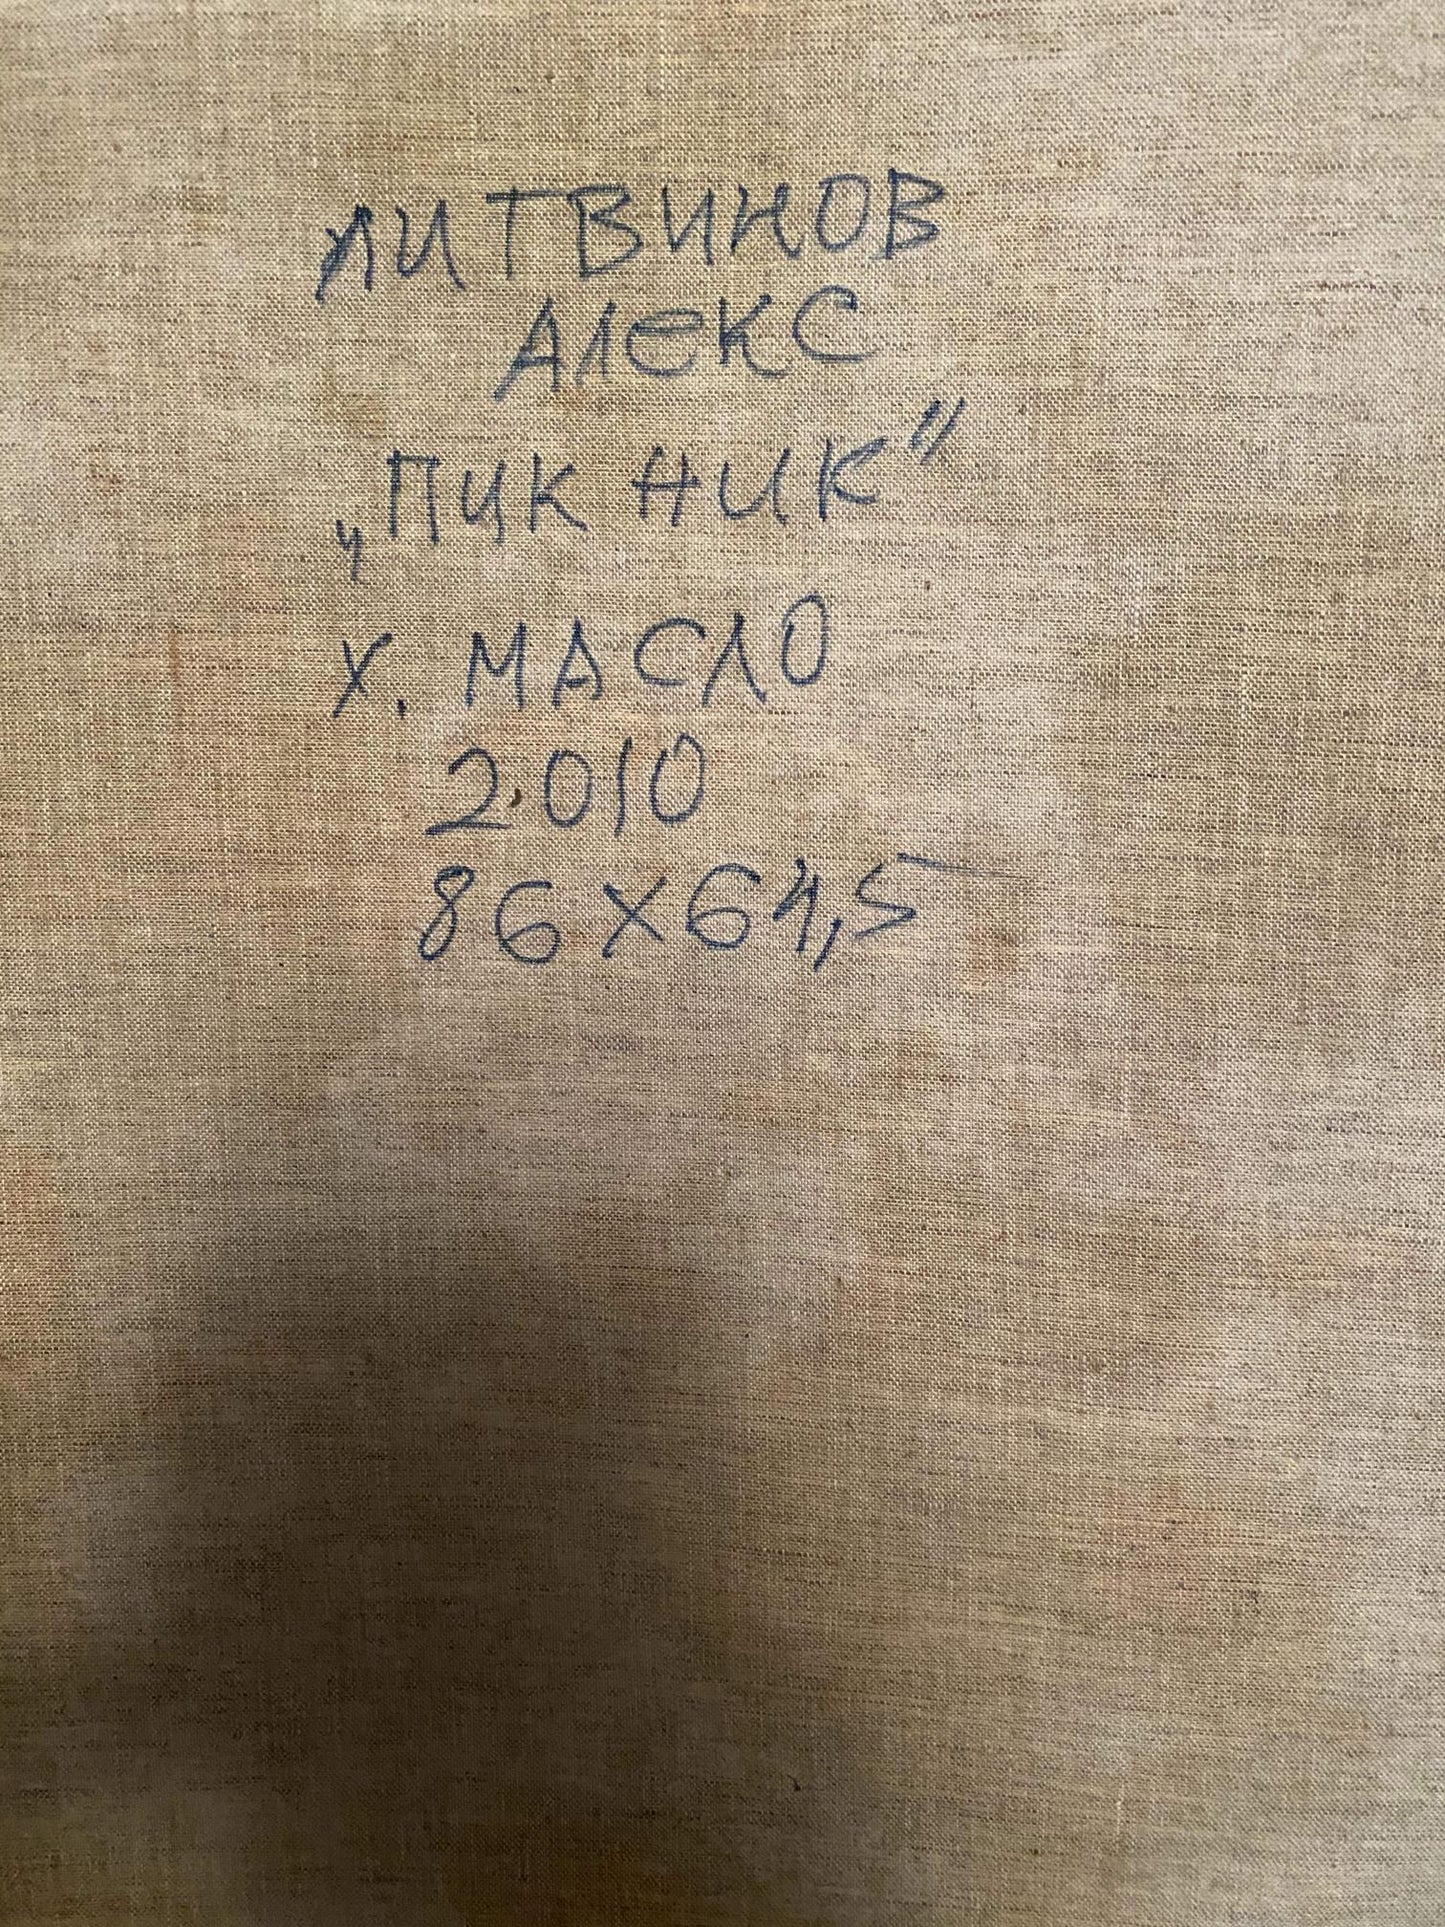 ЛИТВИНОВ
АЛЕКС
„ПИКНИК"
Х. МАСЛО
2010
86х61,5